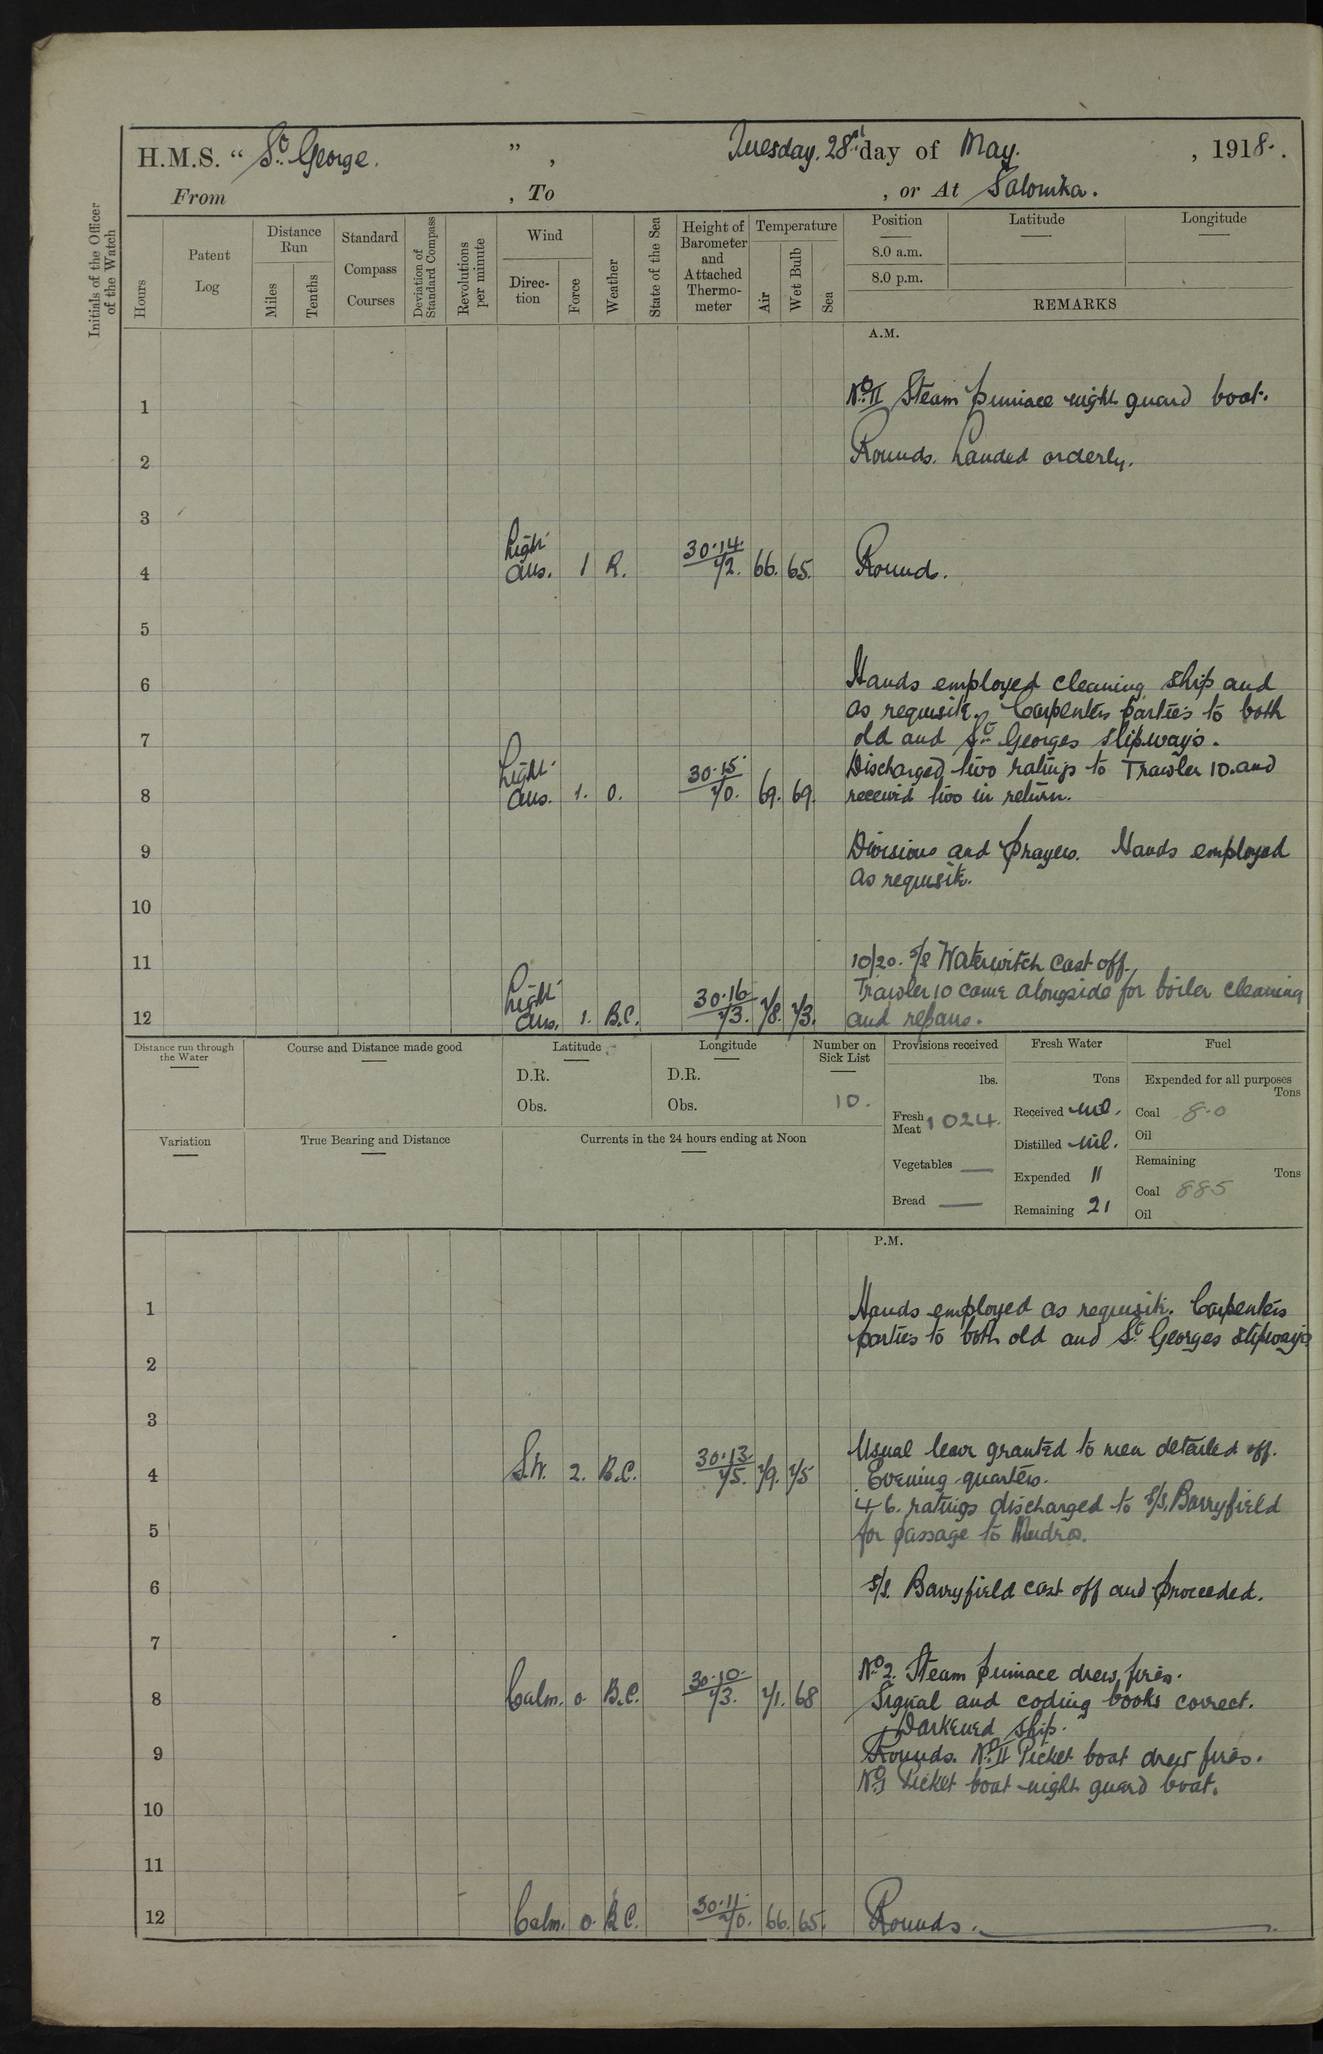 H.M.S. “ St George. ” , Tuesday. 28th day of May. , 1918. .
From , To , or At Salonika.
Initials of the Officer of the Watch
Hours
Patent Log
Distance Run
Miles
Tenths
Standard Compass Courses
Deviation of Standard Compass
Revolutions per minute
Wind
Direction
Force
Weather
State of the Sea
Height of Barometer and Attached Thermometer
Temperature
Air
Wet Bulb
Sea
Position Latitude Longitude
8.0 a.m.
8.0 p.m.
REMARKS
A.M.
1 No II Steam pinnace night guard boat.
2 Rounds. Landed orderly.
3
4 Light airs. 1 R. 30.14. 72. 66. 65. Rounds.
5
6 Hands employed cleaning ship and
as requisite. Carpenters parties to both
7 old and St Georges slipways.
Discharged two ratings to Trawler 10. and
8 Light airs. 1. O. 30.15 70. 69. 69. received two in return.
9 Divisions and prayers. Hands employed
as requisite.
10
11 10/20. S/S Waterwitch cast off.
Trawler 10 came alongside for boiler cleaning
12 Light airs. 1. B.C. 30.16 73. 78. 73. and repairs.
Distance run through the Water
Course and Distance made good
Latitude
D.R.
Obs.
Longitude
D.R.
Obs.
Number on Sick List
10.
Variation
True Bearing and Distance
Currents in the 24 hours ending at Noon
Provisions received
lbs.
Fresh Meat 1024.
Vegetables —
Bread —
Fresh Water
Tons
Received nil.
Distilled nil.
Expended 11
Remaining 21
Fuel
Expended for all purposes
Tons
Coal 8.0
Oil
Remaining
Tons
Coal 885
Oil
P.M.
1 Hands employed as requisite. Carpenters
parties to both old and St Georges slipways
2
3
Usual leave granted to men detailed off.
4 S.W. 2. B.C. 30.13. 75. 79. 75 Evening quarters.
46. ratings discharged to S/S. Barryfield
5 for passage to Mudros.
6 S/S. Barryfield cast off and proceeded.
7
No 2. Steam pinnace drew fires.
8 Calm. 0. B.C. 30.10. 73. 71. 68 Signal and coding books correct.
Darkened ship.
9 Rounds. No II Picket boat drew fires.
No 1 Picket boat night guard boat.
10
11
12 Calm. 0. B.C. 30.11. 70. 66. 65. Rounds.